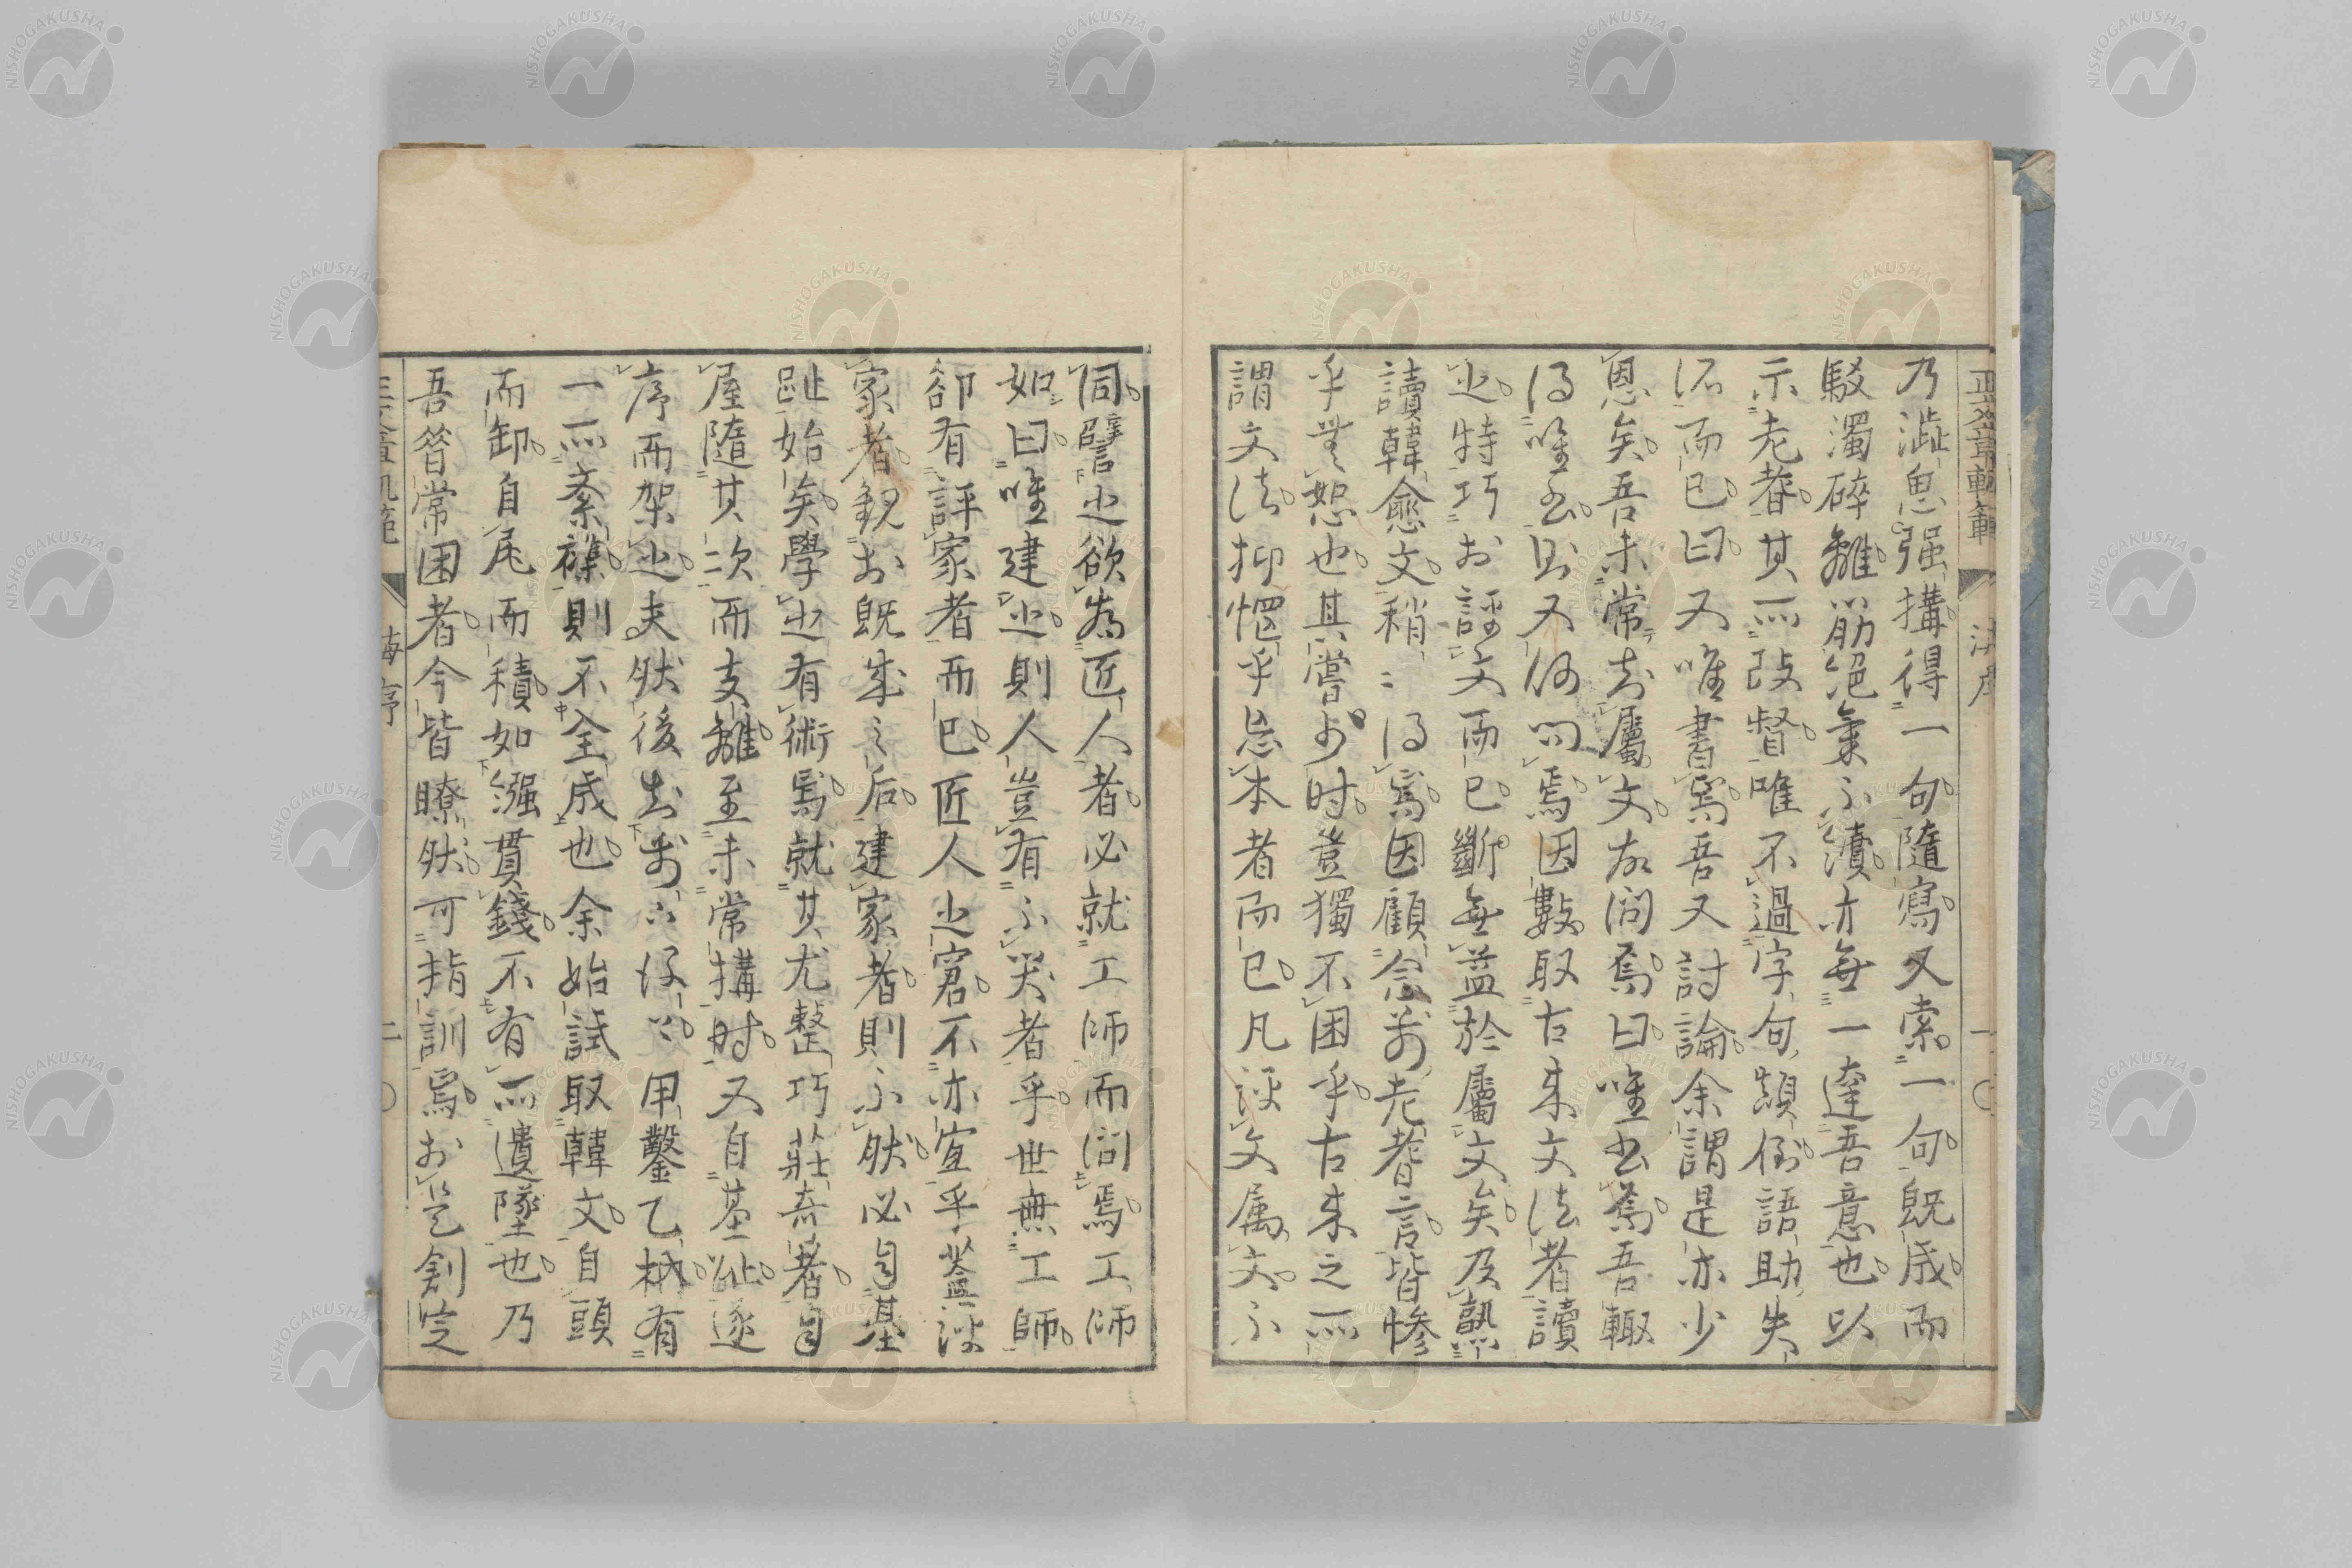 乃澁思强搆得一句隨寫又索一句既成而
駁濁碎雜筋絕氣不瀆亦無一達吾意也以
示老耆其所改督唯不過字句顛倒語助失
法而已曰又唯書焉吾又討論余謂是亦少
恩矣吾未常知屬文故問焉曰唯書焉吾輙
得唯書則又何問焉因數取古來文法者讀
之特巧於評文而已斷無益於屬文矣及熟
讀韓愈文稍〻得焉因顧念前老耆言皆慘
乎無恕也其嘗少時豈獨不困乎古來之所
謂文法抑惽乎忘本者而已凡評文属文不
同譬之欲為匠人者必就工師而問焉工師
如曰唯建之則人豈有不哭者乎世無工師
卻有評家者而已匠人之窘不亦宜乎蓋評
家者觀於既成之后建家者則不然必自基
趾始矣學之有術焉就其尤整巧莊奇者自
屋隨其次而支離至未常搆時又自基趾逐
序而架之夫然後知前不得〻甲鑿乙枘有
一所紊襍則不全成也余始試取韓文自頭
而卸自尾而積如繦貫錢不有所遺墜也乃
吾昝常困者今皆瞭然可指訓焉於是創定
NISHOGAKUSHA